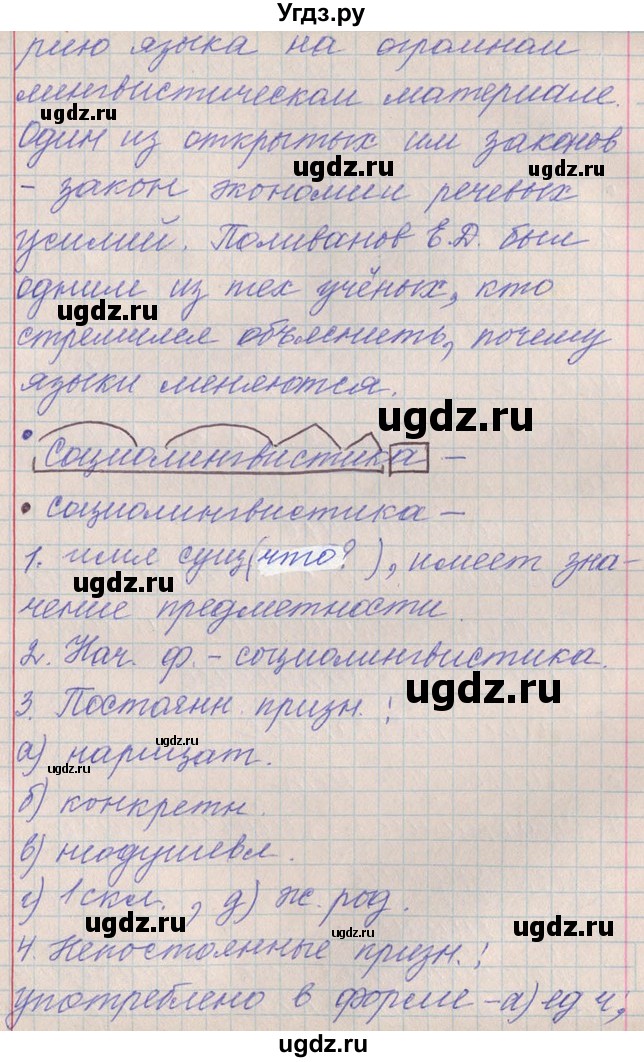 Угдз.ру
рию языка на огромном
лингвистическом материале.
ugdz.ru
Один из открытых им законов
ugdz.ru
ugdz.ru
- закон экономии речевых
усилий. Поливанов Е.Д. был
ugdz.ru
одним из тех учёных, кто
ugdz.ru
стремился объяснить, почему
языки меняются.
ugdz.ru
• социолингвистика –
• социолингвистика –
ugdz.ru
1. имя сущ(что?), имеет зна-
ugdz.ru
чение предметности
2. Нач. ф. – социолингвистика.
ugdz.ru
3. Постоянн. призн.:
а) нарицат.
ugdz.ru
ugdz.ru
б) конкретн.
в) неодушевл.
г) 1 скл., д) ж. род.
ugdz.ru
ugdz.ru
ugdz.ru
4. Непостоянные призн.:
употреблено в форме – а) ед ч;
ugdz.ru
Угдз.ру